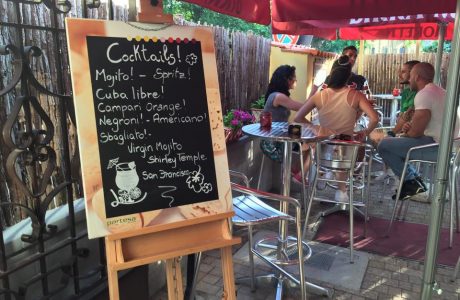 Cocktails!
Mojito! - Spritz!
Cuba libre!
Campari Orange!
Negroni! - Americano!
Sbagliato! -
Virgin Mojito
Shirley Temple
San Francisco
portesa